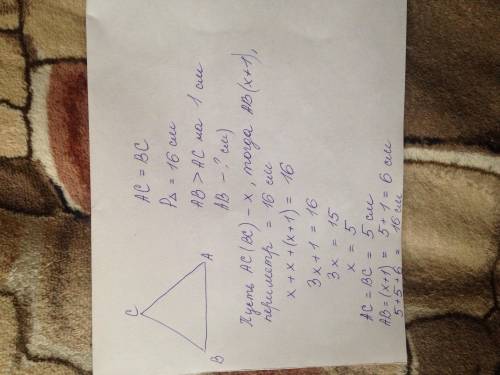 C
B
A
AC = BC
P△ = 16 см
AB > AC на 1 см
AB - ? см)
Пусть AC(BC) - x, тогда AB(x+1),
периметр = 16 см
x + x + (x+1) = 16
3x + 1 = 16
3x = 15
x = 5
AC = BC = 5 см
AB = (x+1) = 5 + 1 = 6 см
5 + 5 + 6 = 16 см